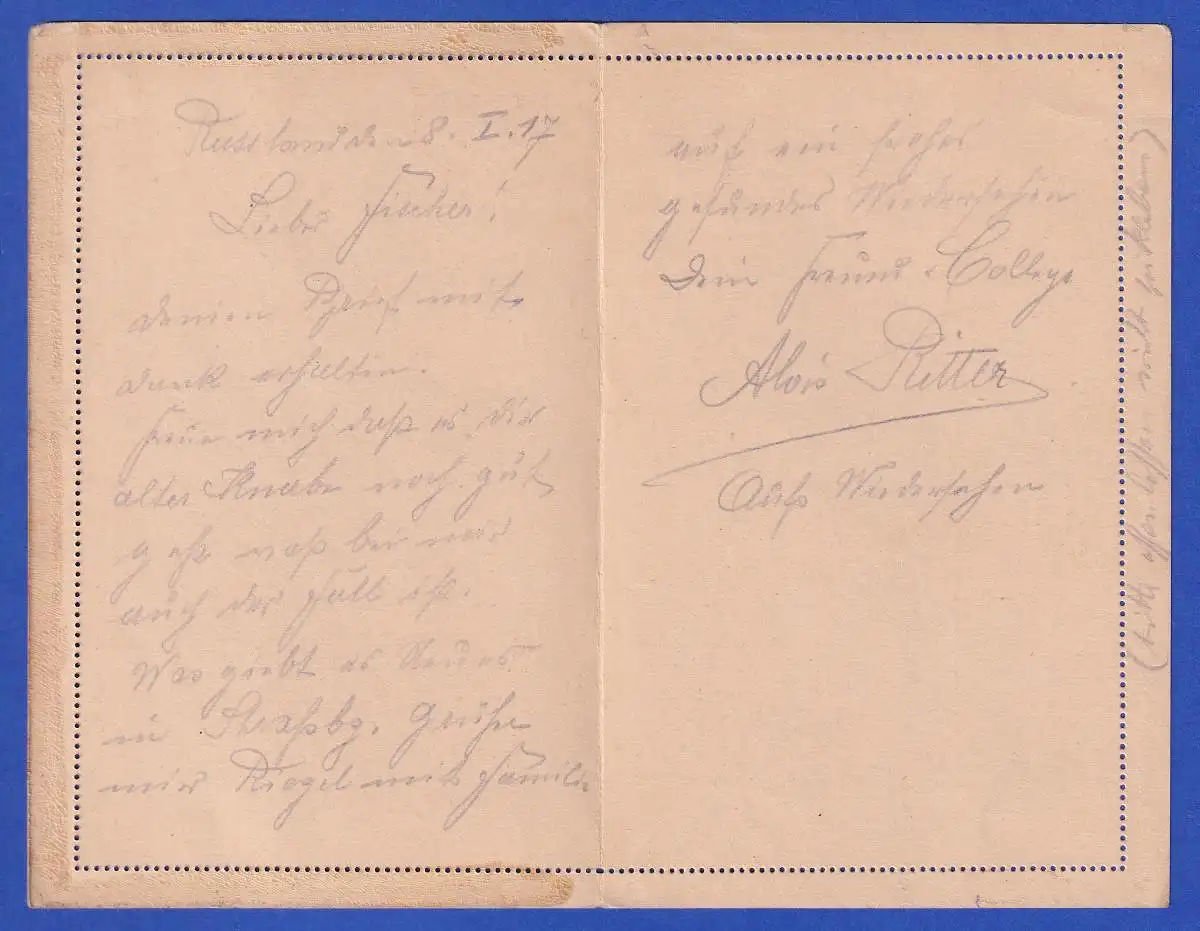 Russland den 8. I. 17
Lieber Fischer!
Deinen Brief mit
Dank erhalten.
Freue mich daß es Dir
alter Knabe noch gut
geht waß bei mir
auch der Fall ist.
Was giebt es Neues
in Straßbg. Grüße
mir Riegel mit Familie
auf ein frohes
gesundes Wiedersehen
Dein Freund & College
Alois Ritter
Aufs Wiedersehen
(bitte offen lassen nicht zukleben)